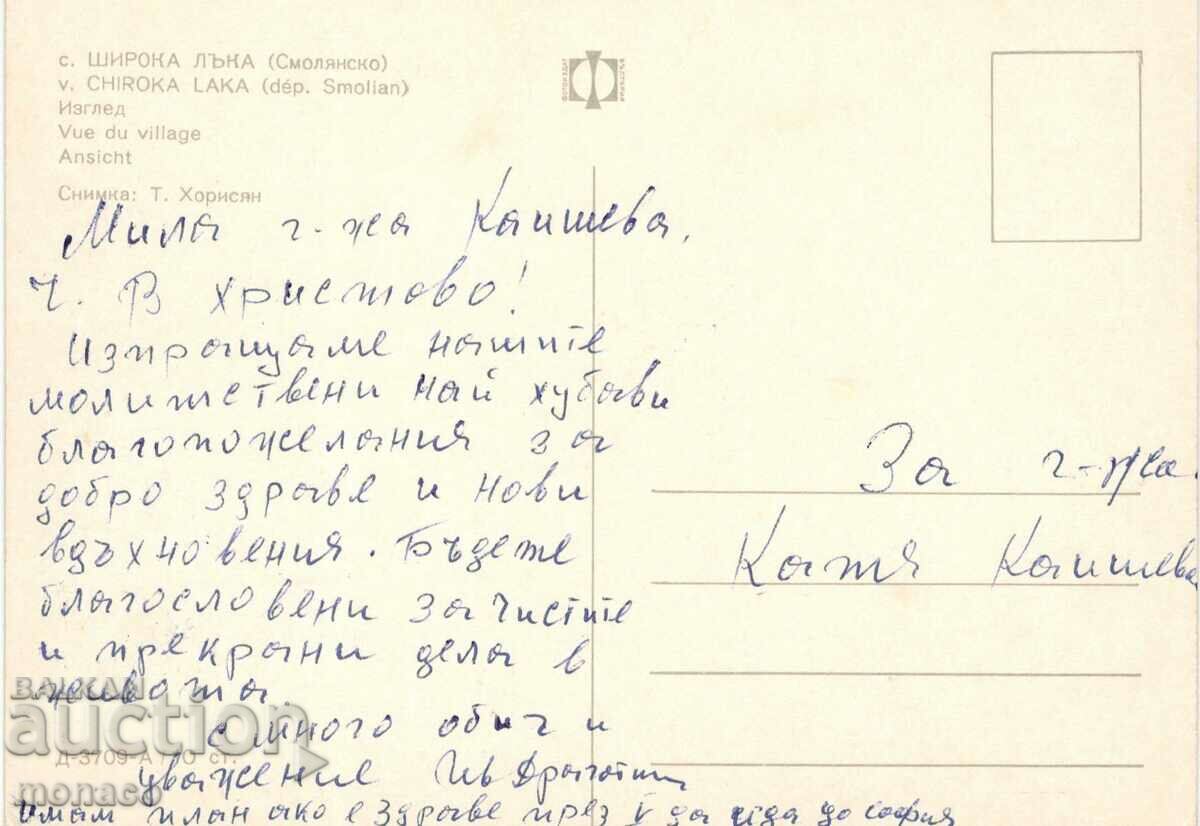 с. ШИРОКА ЛЪКА (Смолянско)
v. CHIROKA LAKA (dép. Smolian)
Изглед
Vue du village
Ansicht
Снимка: Т. Хорисян
ФОТОИЗДАТ
БЪЛГАРИЯ
Мила г-жа Каишева,
Ч. В Христово!
Изпращаме нашите
молитствени най хубави
благопожелания за
добро здраве и нови
вдъхновения. Бъдете
благословени за чистите
и прекрани дела в
живота.
с много обич и
уважение Ив Драгот
Имам план ако е здраве през V да ида до София
За г-жа
Катя Каишева
Д-3709-А
ст.
БАЛКАН
auction
monaco